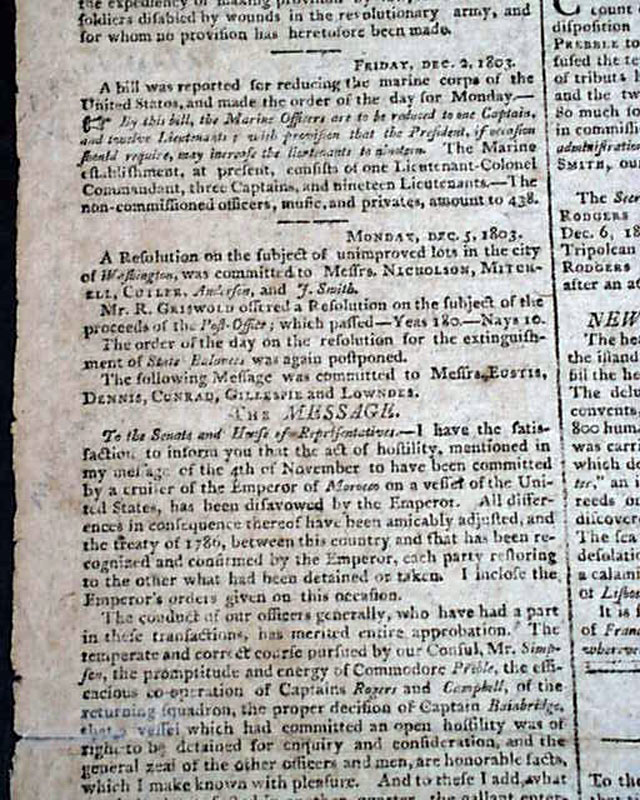 the expediency of making provision by
soldiers disabled by wounds in the revolutionary army, and
for whom no provision has heretofore been made.
FRIDAY, DEC. 2, 1803.
A bill was reported for reducing the marine corps of the
United States, and made the order of the day for Monday.—
☞ By this bill, the Marine Officers are to be reduced to one Captain,
and twelve Lieutenants; with provision that the President, if occasion
should require, may increase the lieutenants to nineteen. The Marine
establishment, at present, consists of one Lieutenant-Colonel
Commandant, three Captains, and nineteen Lieutenants.—The
non-commissioned officers, music, and privates, amount to 438.
MONDAY, DEC. 5, 1803.
A Resolution on the subject of unimproved lots in the city
of Washington, was committed to Messrs. NICHOLSON, MITCH-
ELL, CUTLER, Anderson, and J. Smith.
Mr. R. GRISWOLD offered a Resolution on the subject of the
proceeds of the Post-Office; which passed—Yeas 180.—Nays 10.
The order of the day on the resolution for the extinguish-
ment of State Balances was again postponed.
The following Message was committed to Messrs. EUSTIS,
DENNIS, CONRAD, GILLESPIE and LOWNDES.
THE MESSAGE.
To the Senate and House of Representatives.—I have the satis-
faction to inform you that the act of hostility, mentioned in
my message of the 4th of November to have been committed
by a cruiser of the Emperor of Morocco on a vessel of the Uni-
ted States, has been disavowed by the Emperor. All differ-
ences in consequence thereof have been amicably adjusted, and
the treaty of 1786, between this country and that has been re-
cognized and confirmed by the Emperor, each party restoring
to the other what had been detained or taken. I inclose the
Emperor's orders given on this occasion.
The conduct of our officers generally, who have had a part
in these transactions, has merited entire approbation. The
temperate and correct course pursued by our Consul, Mr. Simp-
son, the promptitude and energy of Commodore Preble, the effi-
cacious co-operation of Captains Rogers and Campbell, of the
returning squadron, the proper decision of Captain Bainbridge,
that a vessel which had committed an open hostility was of
right to be detained for enquiry and consideration, and the
general zeal of the other officers and men, are honorable facts,
which I make known with pleasure. And to these I add, what
another quarter, the gallant
count
disposition
PREBLE to
fused the
of tribut
and the tw
so much fo
in commissi
administration
SMITH, ou
The Secr
RODGERS
Dec. 6, 18
Tripolean
RODGERS
after an a
NEW
The hea
the island
bil the he
The delu
convents
800 hum
was carri
which d
ter," an i
reeds on
discover
The sea
desolati
a calami
of Lisbon
It is
of Fran
wherever
To th